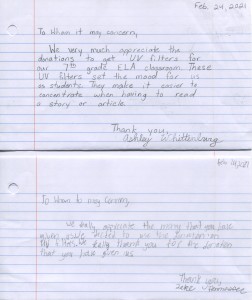 Feb. 24, 2021
To Whom it may concern,
We very much appreciate the
donations to get UV filters for
our 7th grade ELA classroom. These
UV filters set the mood for us
as students. They make it easier to
concentrate when having to read
a story or article.
Thank you,
Ashley Whittenburg
To Whom to may concern,
We really appreciate the money that you have
given us. We decided to use the
UV filters. We really thank you for the donation
that you have given us
Thank you
Jake